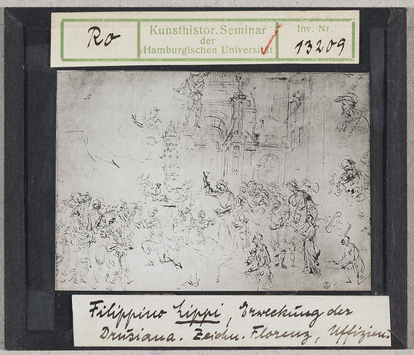 Ro
Kunsthistor. Seminar
der
Hamburgischen Universität
Inv.-Nr.
13209
Filippino Lippi, Erweckung der
Drusiana. Zeichn. Florenz, Uffizien.